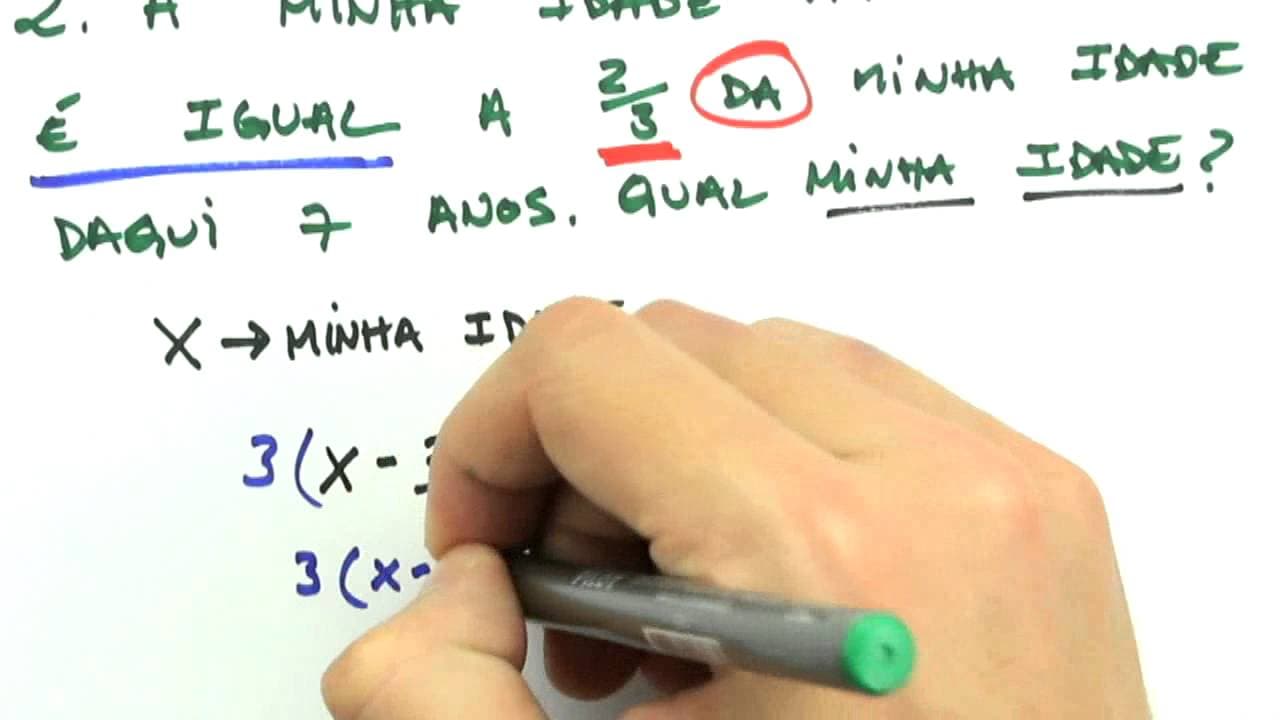 2. A MINHA IDADE
É IGUAL A 2/3 DA MINHA IDADE
DAQUI 7 ANOS. QUAL MINHA IDADE?
X → MINHA
3(X -
3(X-